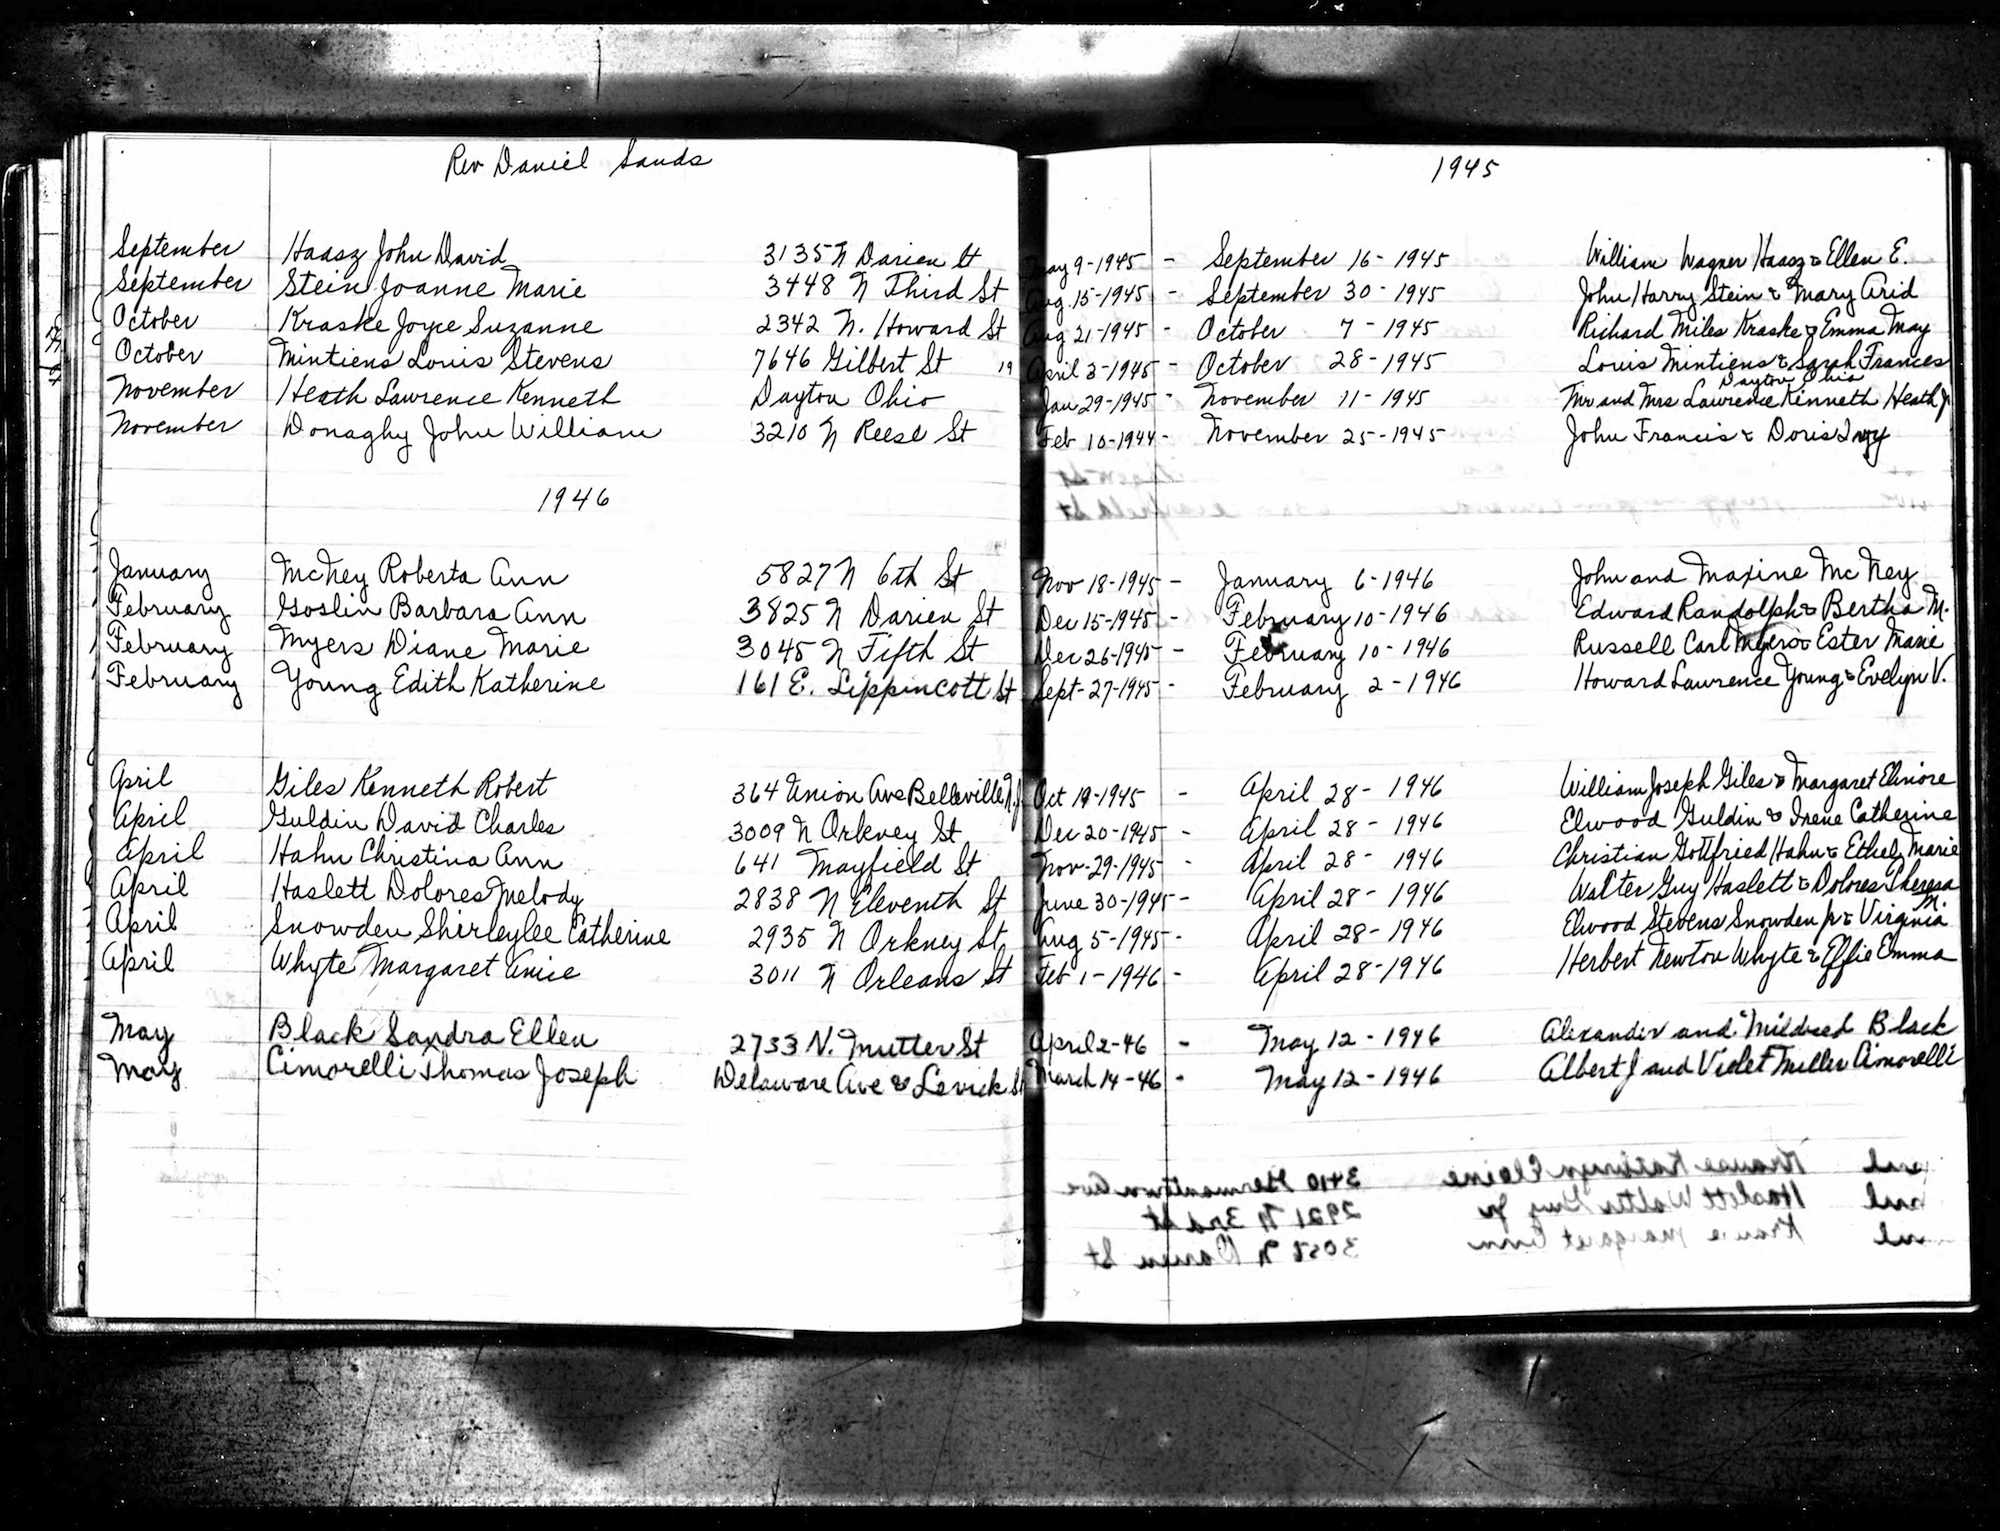 Rev Daniel Sands 1945
September Haasz John David 3135 N Darien St May 9-1945 - September 16-1945 William Wagner Haasz & Ellen E.
September Stein Joanne Marie 3448 N Third St Aug 15-1945 - September 30-1945 John Harry Stein & Mary Arid
October Kraske Joyce Suzanne 2342 N. Howard St Aug 21-1945 - October 7-1945 Richard Miles Kraske & Emma May
October Mintiens Louis Stevens 7646 Gilbert St 19 April 3-1945 - October 28-1945 Louis Mintiens & Sarah Frances
Dayton Ohio
November Heath Lawrence Kenneth Dayton Ohio Jan 29-1945 - November 11-1945 Mr and Mrs Lawrence Kenneth Heath Jr
November Donaghy John William 3210 N Reese St Feb 10-1944 - November 25-1945 John Francis & Doris Ivy
1946
January McNey Roberta Ann 5827 N 6th St Nov 18-1945 - January 6-1946 John and Maxine McNey
February Goslin Barbara Ann 3825 N Darien St Dec 15-1945 - February 10-1946 Edward Randolph & Bertha M.
February Myers Diane Marie 3045 N Fifth St Dec 26-1945 - February 10-1946 Russell Carl Myers & Ester Marie
February Young Edith Katherine 161 E. Lippincott St Sept-27-1945 - February 2-1946 Howard Lawrence Young & Evelyn V.
April Giles Kenneth Robert 364 Union Ave Belleville N.J. Oct 19-1945 - April 28-1946 William Joseph Giles & Margaret Elinore
April Guldin David Charles 3009 N Orkney St Dec 20-1945 - April 28-1946 Elwood Guldin & Irene Catherine
April Hahn Christina Ann 641 Mayfield St Nov-29-1945 - April 28-1946 Christian Gottfried Hahn & Ethel Marie
April Haslett Dolores Melody 2838 N Eleventh St June 30-1945 - April 28-1946 Walter Guy Haslett & Dolores Theresa
April Snowden Shirleylee Catherine 2935 N Orkney St Aug 5-1945 - April 28-1946 Elwood Stevens Snowden Jr & Virginia M.
April Whyte Margaret Anice 3011 N Orleans St Feb 1-1946 - April 28-1946 Herbert Newton Whyte & Effie Emma
May Black Sandra Ellen 2733 N. Mutter St April 2-46 - May 12-1946 Alexander and Mildred Black
May Cimorelli Thomas Joseph Delaware Ave & Levick St March 14-46 - May 12-1946 Albert J and Violet Miller Cimorelli